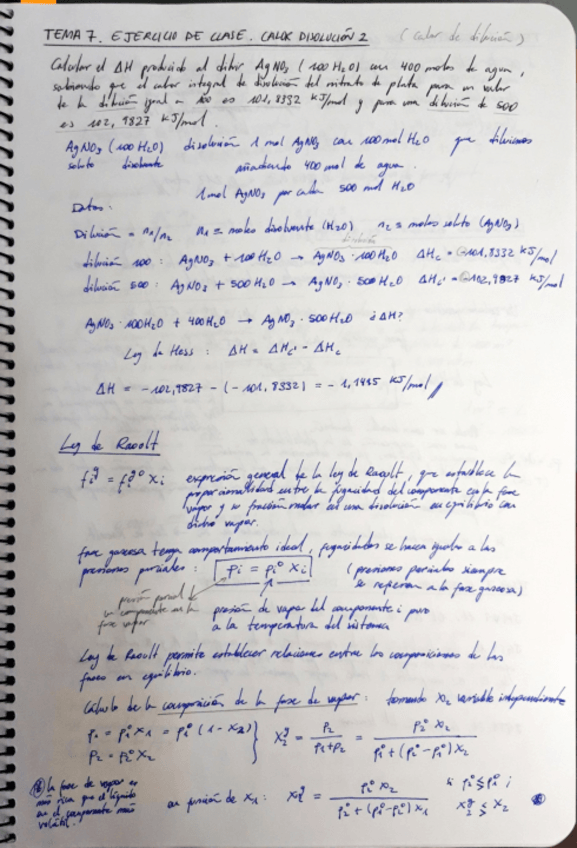 TEMA 7. EJERCICIO DE CLASE. CALOR DISOLUCIÓN 2 (calor de dilución)
Calcular el ΔH producido al diluir AgNO₃ (100 H₂O) con 400 moles de agua,
sabiendo que el calor integral de disolución del nitrato de plata para un valor
de la dilución igual a 100 es 101,8332 KJ/mol y para una dilución de 500
es 102,9827 KJ/mol.
AgNO₃ (100 H₂O) disolución 1 mol AgNO₃ con 100 mol H₂O que diluimos
soluto disolvente añadiendo 400 mol de agua.
1 mol AgNO₃ por cada 500 mol H₂O
Datos:
Dilución = n₁/n₂ n₁ = moles disolvente (H₂O) n₂ = moles soluto (AgNO₃)
dilución
dilución 100: AgNO₃ + 100 H₂O → AgNO₃·100H₂O ΔHc = -101,8332 KJ/mol
dilución 500: AgNO₃ + 500 H₂O → AgNO₃·500H₂O ΔHc' = -102,9827 KJ/mol
AgNO₃·100H₂O + 400H₂O → AgNO₃·500H₂O ¿ΔH?
Ley de Hess: ΔH = ΔHc' - ΔHc
ΔH = -102,9827 - (-101,8332) = -1,1495 KJ/mol
Ley de Raoult
fᵢᵍ = fᵢᵍ⁰ xᵢ expresión general de la ley de Raoult, que establece la
proporcionalidad entre la fugacidad del componente en la fase
vapor y su fracción molar en una disolución en equilibrio con
dicho vapor.
fase gaseosa tenga comportamiento ideal, fugacidades se hacen iguales a las
presiones parciales: pᵢ = pᵢ⁰ xᵢ (presiones parciales siempre
se refieren a la fase gaseosa)
presión parcial de
un componente en la
fase vapor
presión de vapor del componente i puro
a la temperatura del sistema
Ley de Raoult permite establecer relaciones entre las composiciones de las
fases en equilibrio.
Cálculo de la composición de la fase de vapor: tomando x₂ variable independiente
p₁ = p₁⁰ x₁ = p₁⁰ (1 - x₂) } x₂ᵍ = p₂ / (p₁+p₂) = p₂⁰ x₂ / (p₁⁰ + (p₂⁰ - p₁⁰) x₂)
p₂ = p₂⁰ x₂
la fase de vapor es
más rica que el líquido
en el componente más
volátil.
en función de x₁: x₁ᵍ = p₁⁰ x₁ / (p₂⁰ + (p₁⁰ - p₂⁰) x₁)
si p₂⁰ ≶ p₁⁰ ;
x₂ᵍ ≶ x₂